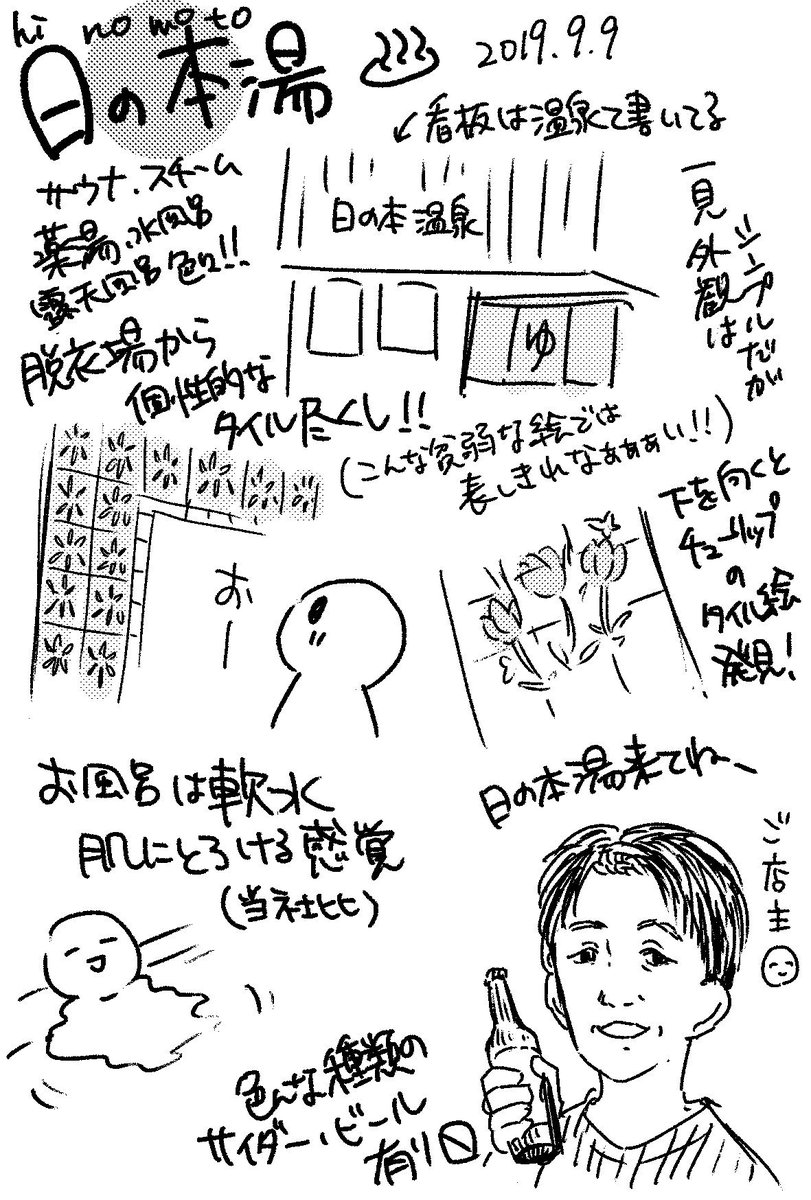 hi no mo to
日の本湯
2019.9.9
←看板は温泉て書いてる
サウナ.スチーム
薬湯.水風呂
露天風呂色々!!
日の本温泉
ゆ
一見外観は
シンプルだが
脱衣場から
個性的な
タイルたくし!!
(こんな貧弱な絵では
表しきれなぁぁぁい!!)
下を向くと
チューリップ
の
タイル絵
発見!
おー
お風呂は軟水
肌にとろける感覚
(当社比)
日の本湯来てね〜
ご店主
色んな種類の
サイダー・ビール
有り〼